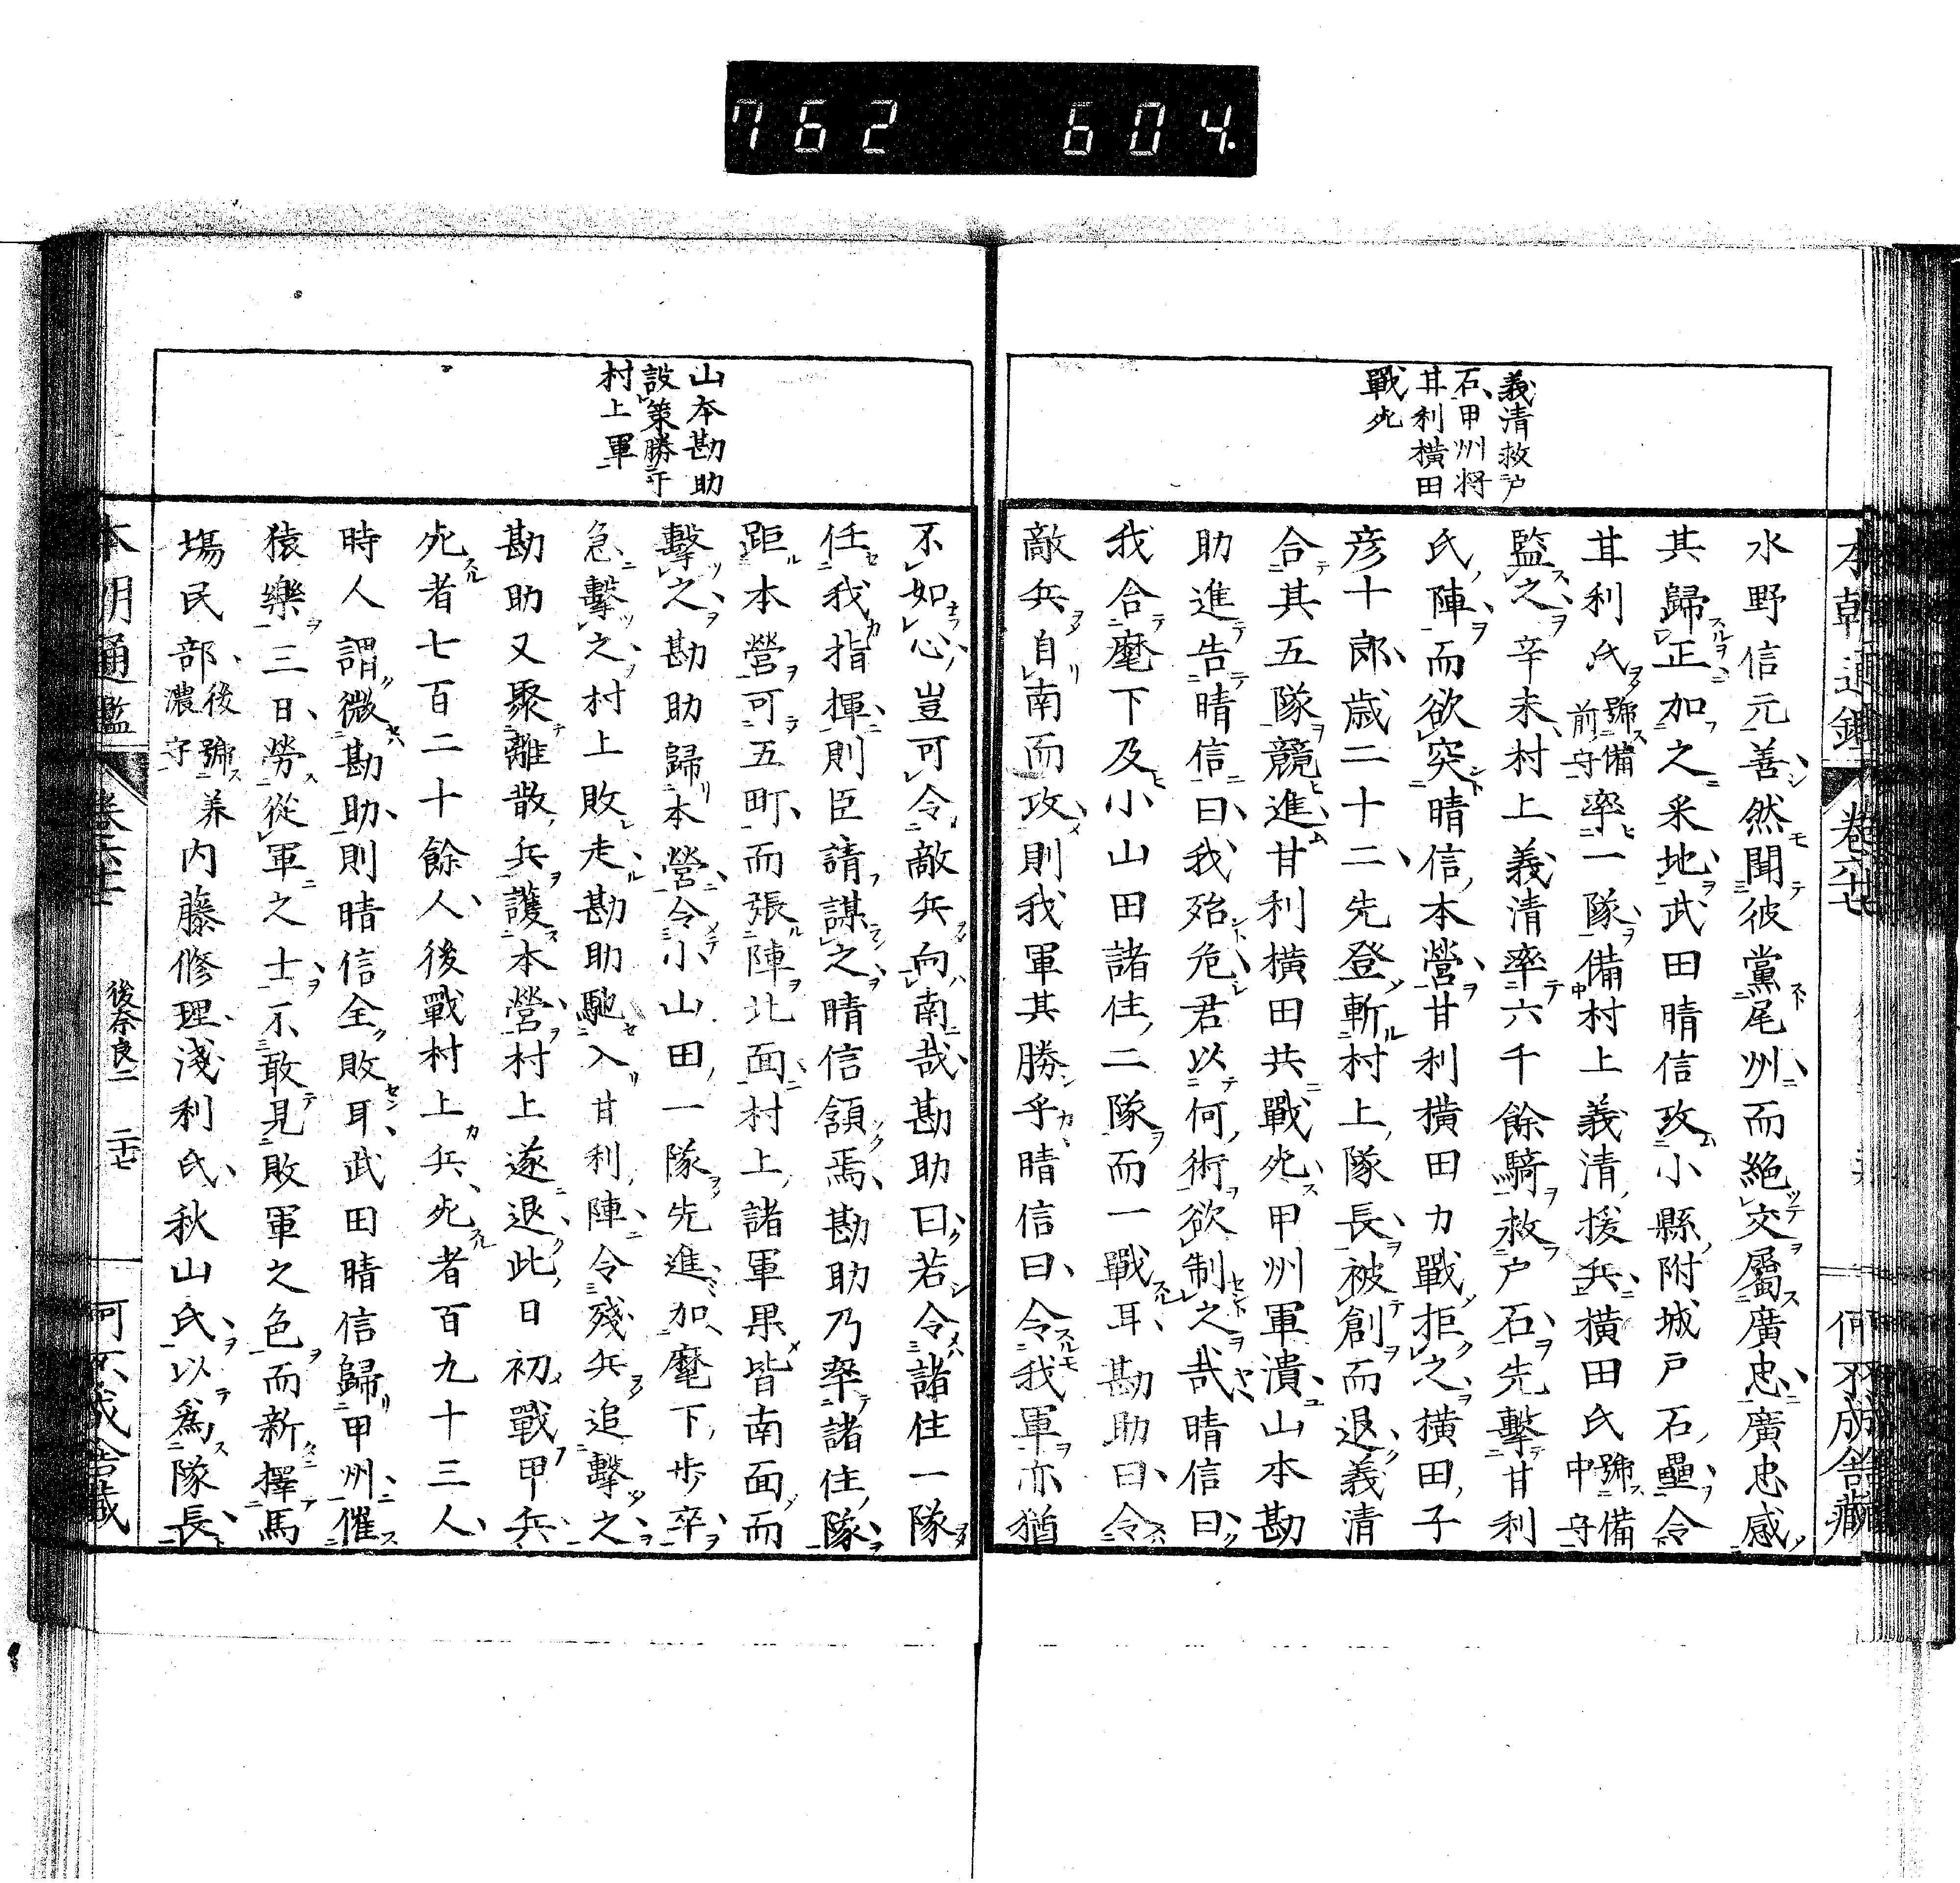 762 604.
本朝通鑑 卷六十七 何不成舎藏
義清救戸
石甲州将
甘利横田
戰死
水野信元善然聞彼黨尾州而絶交屬廣忠廣忠感
其歸正加之采地武田晴信攻小縣附城戸石壘令
甘利氏號備前守率一隊備村上義清援兵横田氏號備中守
監之辛未村上義清率六千餘騎救戸石先擊甘利
氏陣而欲突晴信本營甘利横田力戰拒之横田子
彦十郎歳二十二先登斬村上隊長被創而退義清
合其五隊競進甘利横田共戰死甲州軍潰山本勘
助進告晴信曰我殆危君以何術欲制之哉晴信曰
我合麾下及小山田諸住二隊而一戰耳勘助曰令
敵兵自南而攻則我軍其勝乎晴信曰令我軍亦猶
山本勘助
設策勝于
村上軍
不如心豈可令敵兵向南哉勘助曰若令諸住一隊
任我指揮則臣請謀之晴信頷焉勘助乃率諸住隊
距本營可五町而張陣北面村上諸軍果皆南面而
擊之勘助歸本營令小山田一隊先進加麾下步卒
急擊之村上敗走勘助馳入甘利陣令殘兵追擊之
勘助又聚離散兵護本營村上遂退此日初戰甲兵
死者七百二十餘人後戰村上兵死者百九十三人
時人謂微勘助則晴信全敗耳武田晴信歸甲州催
猿樂三日勞從軍之士不敢見敗軍之色而新擇馬
塲民部後號美濃守内藤修理淺利氏秋山氏以爲隊長
後奈良二 二十七